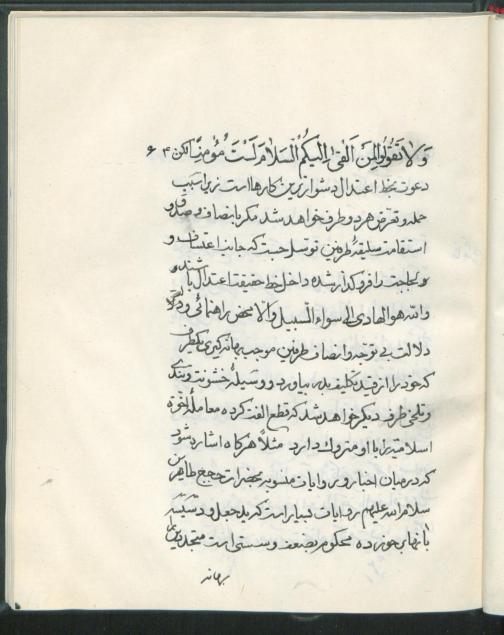 وَلاٰ تَقُولُوا لِمَنْ اَلْقٰی اِلَیْکُمُ السَّلاٰمَ لَسْتَ مُؤْمِنًا لکن ۴ ۶
دعوت بخط اعتدال دشوارترین کارها است زیرا سبب
حمله و تعرّض هر دو طرف خواهد شد مگر بانصاف و صدق و
استقامت سلیقهٔ طرفین توسل جست که جانب اعتساف و
و لجاجت را فروگذار شده داخل خط حقیقت اعتدال باشند
والله هو الهادی الی سواء السبیل والا محض راهنمائی و
دلالت بی توجه و انصاف طرفین موجب بهانه گیری یکطرف
که خود را از قید تکلیف بدر بیاورد و وسیلهٔ خشونت و
و تلخی طرف دیگر خواهد شد که قطع الفت کرده معاملهٔ اخوة
اسلامیة را با او متروک دارد مثلاً هرگاه اشاره شود
که در میان اخبار و روایات منسوبه بحضرات حجج طاهرین
سلام الله علیهم روایات بسیار است که ید جعل و دسیسه
بآنها برخورده محکوم بضعف و سستی است
بهانه